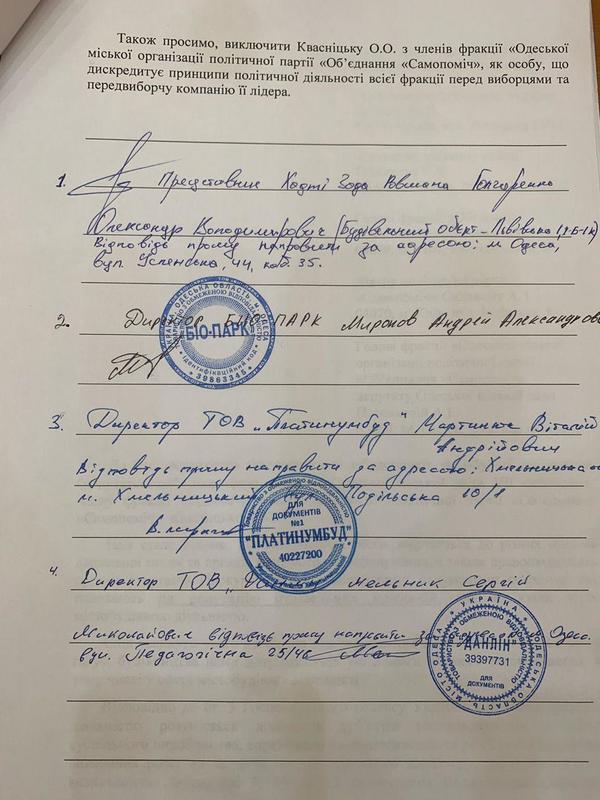 Також просимо, виключити Квасніцьку О.О. з членів фракції «Одеської
міської організації політичної партії «Об’єднання «Самопоміч», як особу, що
дискредитує принципи політичної діяльності всієї фракції перед виборцями та
передвиборчу компанію її лідера.
1. Представник Ходжі Зода Ровшана Гончаренко
Олександр Володимирович (Будівельний об'єкт - Львівська
Відповідь прошу направити за адресою: м Одеса,
вул. Успенська, 44, каб. 35.
2. Директор БІО-ПАРК Миронов Андрей Александров
БІО-ПАРК
Ідентифікаційний код
39863345
3. Директор ТОВ „Платинумбуд" Мартинюк Віталій
Андрійович
Відповідь прошу направити за адресою: Хмельницька
м. Хмельницький Подільська 10/1
ДЛЯ
ДОКУМЕНТІВ
№1
"ПЛАТИНУМБУД"
40227200
4. Директор ТОВ Мельник Сергій
Миколайович відповідь прошу направити Одеса
вул. Педагогічна 25/46
УКРАЇНА
"ДАНЛІН"
39397731
ДЛЯ
ДОКУМЕНТІВ